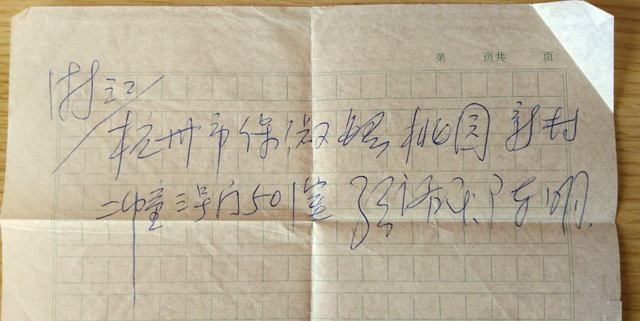 第 页共 页
浙江
杭州市保俶路桃园新村
二幢三号门501室 张
明